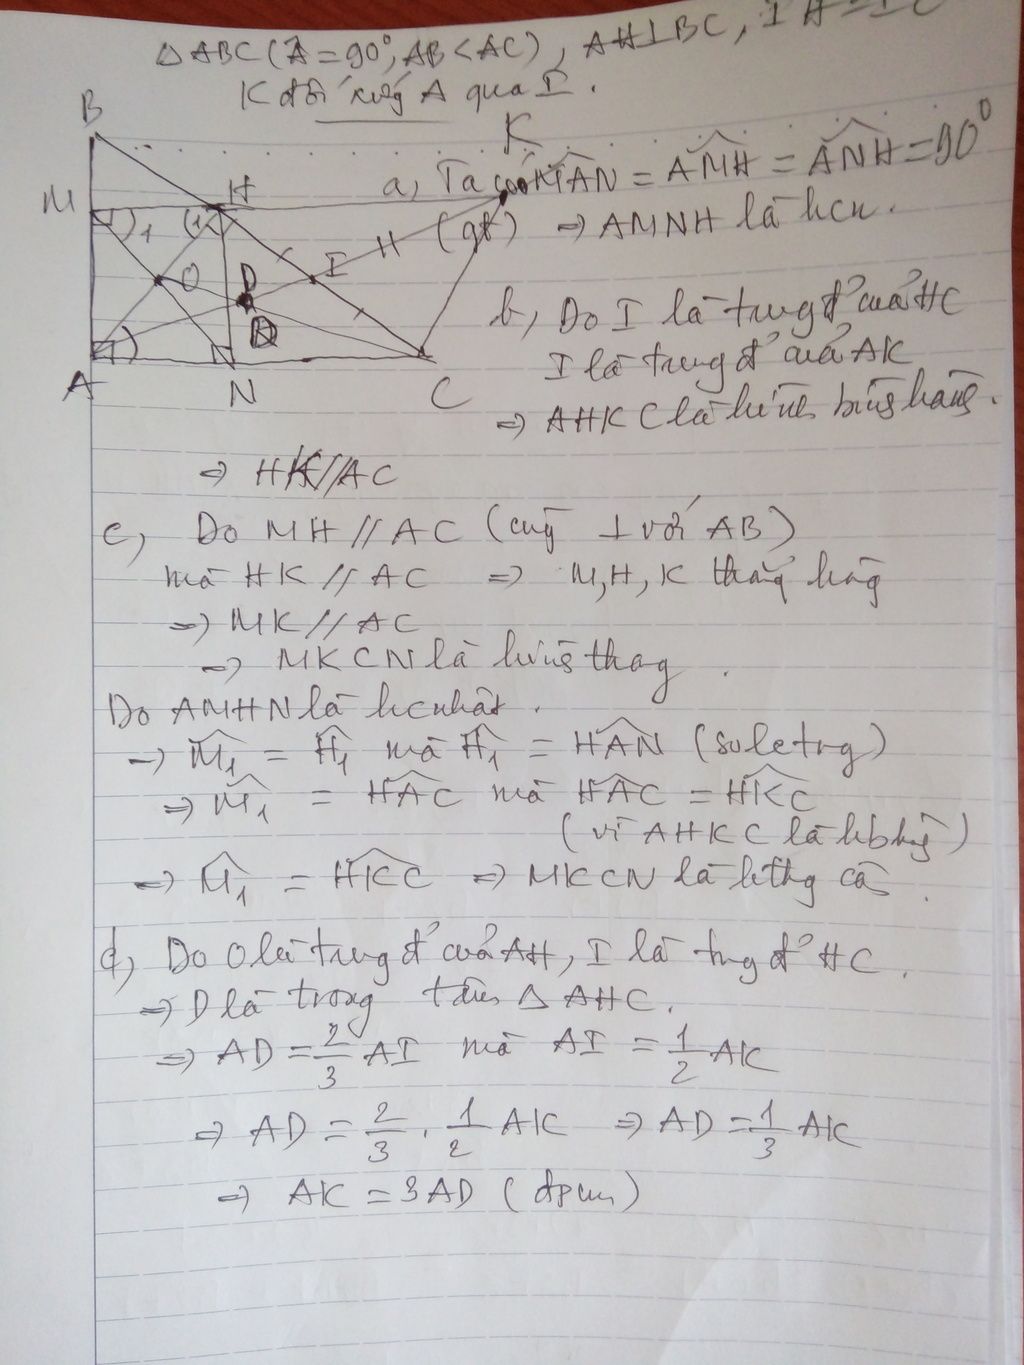 △ABC (Â = 90°, AB < AC), AH⊥BC, IH = IC
K đối xứng A qua I.
B
K
M
H
1
1
2
O
D
I
H
A
N
C
a, Ta có MAN^ = AMH^ = ANH^ = 90°
(gt) ⇒ AMNH là hcn.
b, Do I là trung đ' của HC
I là trung đ' của AK
⇒ AHKC là hình bình hành.
⇒ HK // AC
c, Do MH // AC (cùng ⊥ với AB)
mà HK // AC ⇒ M, H, K thẳng hàng
⇒ MK // AC
⇒ MKCN là hình thang.
Do AMHN là hcnhật.
⇒ M₁^ = H₁^ mà H₁^ = HAN^ (so le trg)
⇒ M₁^ = HAC^ mà HAC^ = HKC^
(vì AHKC là hbhg)
⇒ M₁^ = HKC^ ⇒ MKCN là hthg câ.
d, Do O là trung đ' của AH, I là trg đ' HC.
⇒ D là trong tâm △AHC.
⇒ AD = 2/3 AI mà AI = 1/2 AK
⇒ AD = 2/3 . 1/2 AK ⇒ AD = 1/3 AK
⇒ AK = 3AD (đpcm)